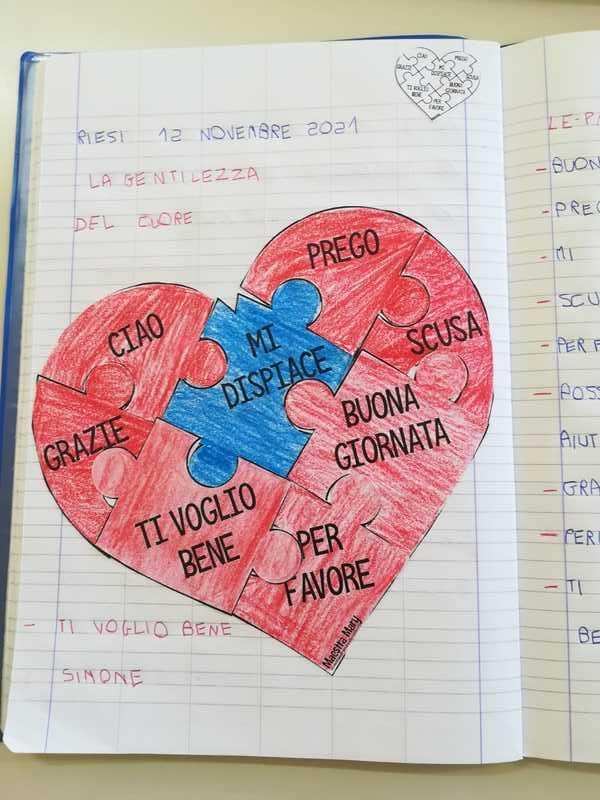 CIAO
PREGO
GRAZIE
MI
DISPIACE
SCUSA
BUONA
GIORNATA
TI VOGLIO
BENE
PER
FAVORE
RIESI 12 NOVEMBRE 2021
LA GENTILEZZA
DEL CUORE
PREGO
CIAO
MI
DISPIACE
SCUSA
GRAZIE
BUONA
GIORNATA
TI VOGLIO
BENE
PER
FAVORE
Maestra Mary
- TI VOGLIO BENE
SIMONE
- BUON
- PREG
- MI
- SCU
- PER F
- POSS
AIUT
- GRA
- PER
- TI
BE